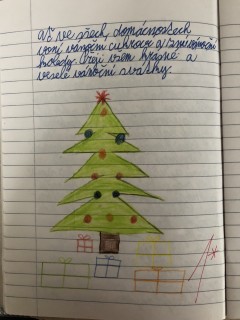 Ať ve všech domácnostech
voní vánoční cukroví a zní vánoční
koledy. Přeji všem krásné a
veselé vánoční svátky.
1*